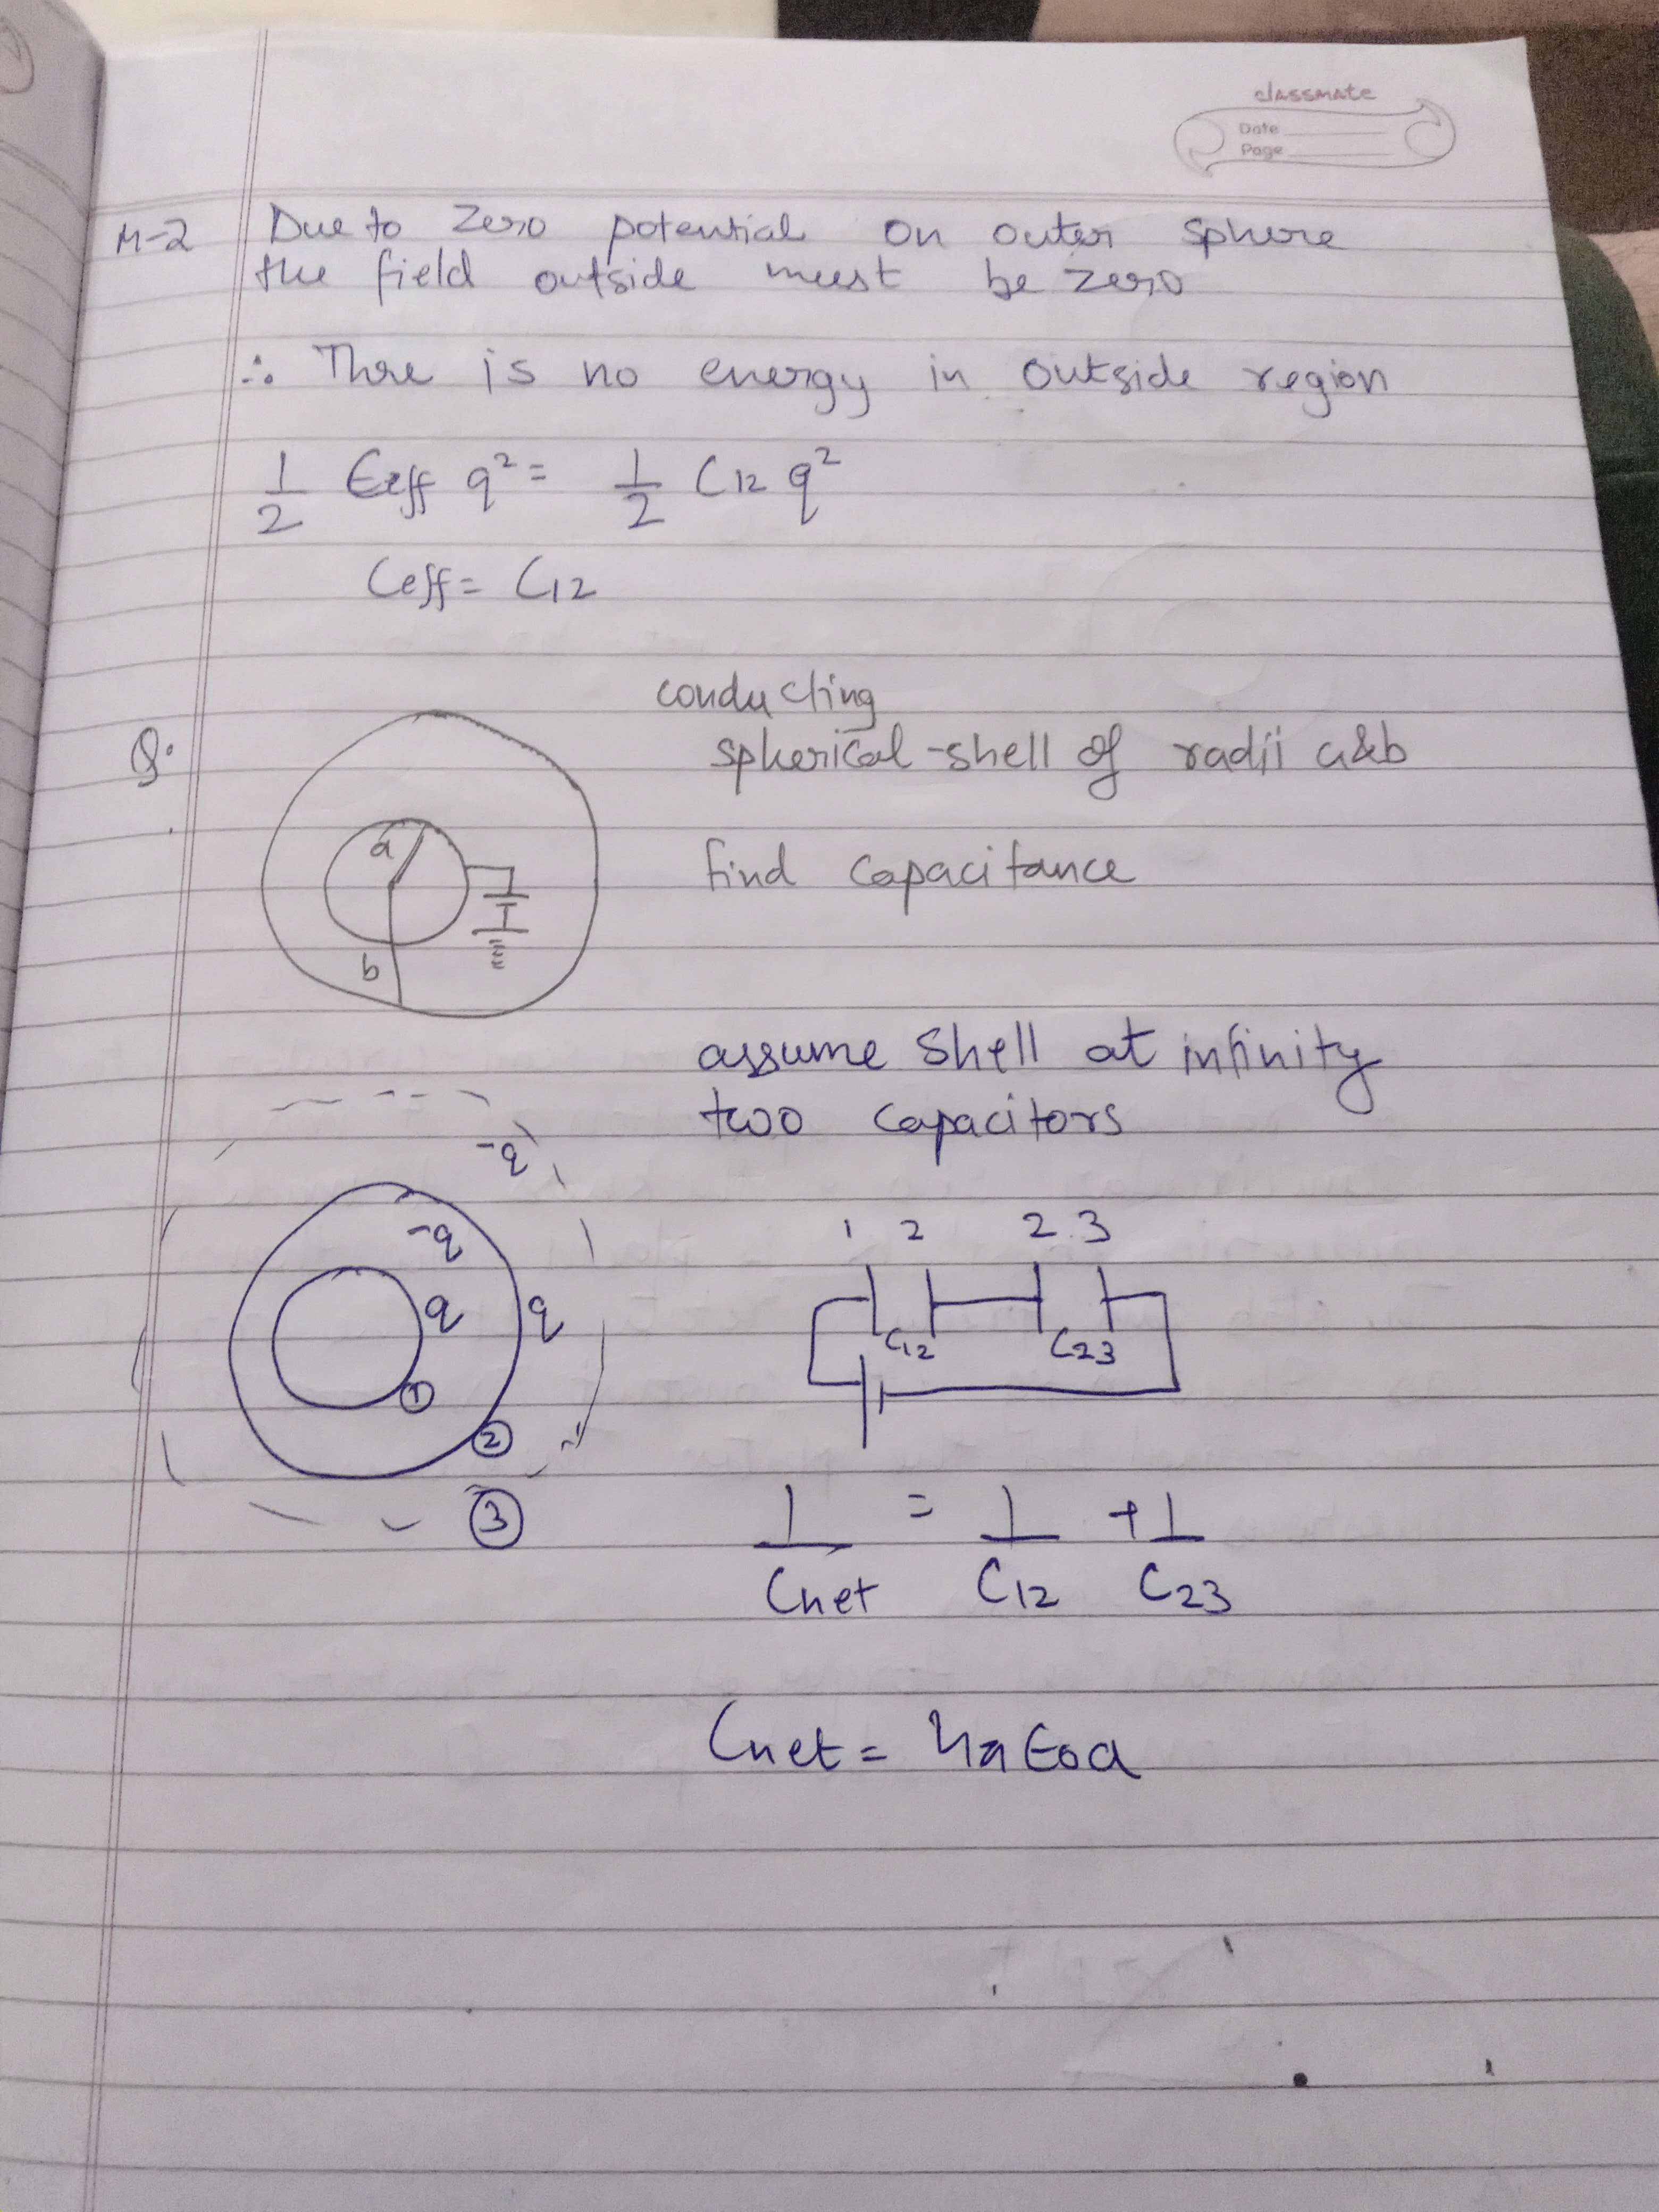 classmate
Date
Page
M-2 Due to zero potential on outer sphere
the field outside must be zero
∴ Thre is no energy in outside region
1/2 Ceff q² = 1/2 C12 q²
Ceff = C12
conducting
Q. spherical-shell of radii a&b
a
find capacitance
b
assume shell at infinity
two capacitors
-q
-q
1 2 2 3
q q
C12 C23
1
2
3
1/Cnet = 1/C12 + 1/C23
Cnet = 4π ε0 a